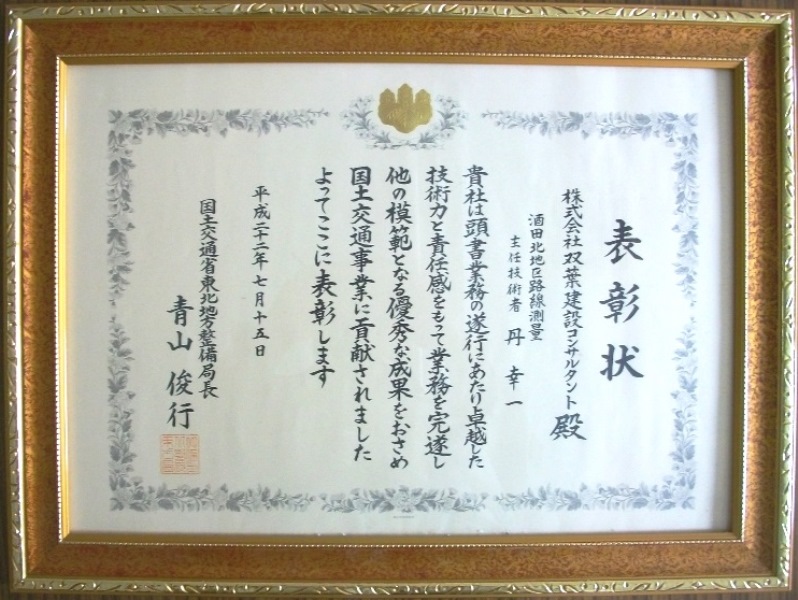 表彰状
株式会社双葉建設コンサルタント殿
酒田北地区路線測量
主任技術者 丹幸一
貴社は頭書業務の遂行にあたり卓越した
技術力と責任感をもって業務を完遂し
他の模範となる優秀な成果をおさめ
国土交通事業に貢献されました
よってここに表彰します
平成二十二年七月十五日
国土交通省東北地方整備局長
青山俊行